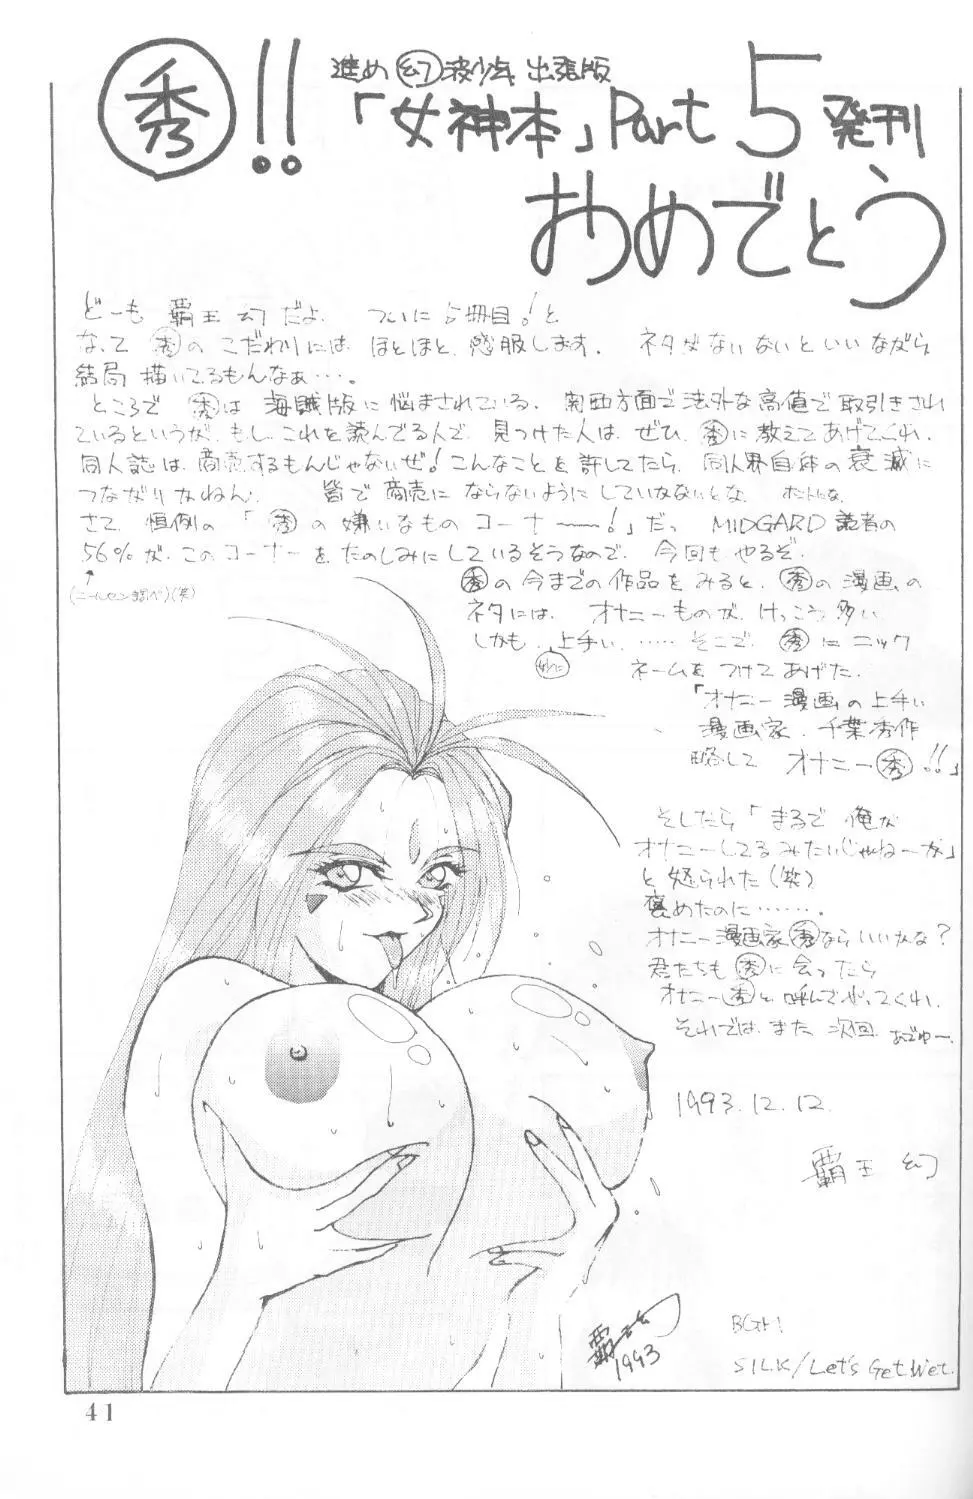 秀!!
進め 幻 波少年 出張版
「女神本」Part 5 発刊
おめでとう
どーも 覇王 幻 だよ ついに 5冊目!と
なって 秀の こだわりには ほとほと 感服します. ネタがないないといいながら
結局 描いてるもんなぁ…。
ところで 秀は 海賊版に 悩まされている. 関西方面で 法外な 高値で 取引きされ
ているというが, もし, これを読んでる人で, 見つけた人は, ぜひ, 秀に教えてあげてくれ.
同人誌は 商売するもんじゃないぜ! こんなことを許してたら, 同人界自体の衰滅に
つながりかねん. 皆で商売にならないようにしていかないとな. ホントにな.
さて 恒例の「秀の嫌いなもの コーナー〜!」だっ MIDGARD 読者の
56%が このコーナーを たのしみに しているそうなので 今回も やるぞ.
(ニールセン調べ)(笑)
秀の今までの作品をみると, 秀の漫画の
ネタには, オナニーものが, けっこう多い
しかも, 上手い, …… そこで, 秀に ニック
妙に
ネームを つけてあげた.
「オナニー漫画の上手い
漫画家, 千葉秀作
略して オナニー秀!!」
そしたら「まるで 俺が
オナニーしてるみたいじゃねーか」
と 怒られた(笑)
褒めたのに……。
オナニー漫画家秀ならいいかな?
君たちも 秀に会ったら
オナニー秀と呼んでやってくれ.
それでは また 次回 あでゅー.
1993.12.12.
覇王 幻
覇王幻
1993
BGM
SILK/Let's Get Wet.
41